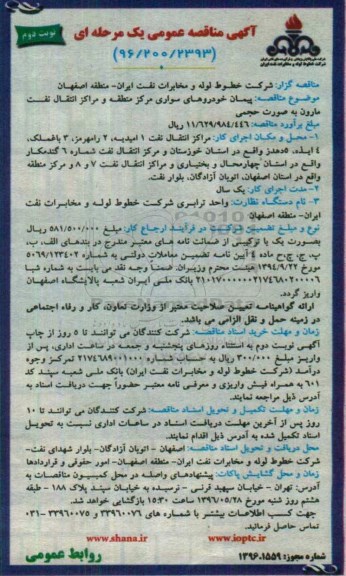 نوبت دوم
آگهی مناقصه عمومی یک مرحله ای
(۹۶/۲۰۰/۲۳۹۳)
مناقصه گزار: شرکت خطوط لوله و مخابرات نفت ایران- منطقه اصفهان
موضوع مناقصه: پیمان خودروهای سواری مرکز منطقه و مراکز انتقال نفت
مارون به صورت حجمی
مبلغ برآورد مناقصه: ۱۱/۶۲۹/۹۸۴/۴۴۶ ریال
۱- محل و مکان اجرای کار: مراکز انتقال نفت ۱ امیدیه، ۲ رامهرمز، ۳ باغملک،
۴ ایذه، ۵ دهدز واقع در استان خوزستان و مرکز انتقال نفت شماره ۶ گندمکار
واقع در استان چهارمحال و بختیاری و مراکز انتقال نفت ۷ و ۸ و مرکز منطقه
واقع در استان اصفهان، اتوبان آزادگان، بلوار نفت.
۲- مدت اجرای کار: یک سال
۳- نام دستگاه نظارت: واحد ترابری شرکت خطوط لوله و مخابرات نفت
ایران- منطقه اصفهان
نوع و مبلغ تضمین شرکت در فرآیند ارجاع کار: مبلغ ۵۸۱/۵۰۰/۰۰۰ ریال
بصورت یک یا ترکیبی از ضمانت نامه های معتبر مندرج در بندهای الف، ب،
پ، ج، چ، ح ماده ۴ آیین نامه تضمین معاملات دولتی به شماره ۱۲۳۴۰۲/ت۵۰۶۵۹
مورخ ۱۳۹۴/۹/۲۲ هیئت محترم وزیران. ضمناً وجه نقد می بایست به شماره شبا
بانک ملی ایران شعبه پالایشگاه اصفهان
واریز گردد.
ارائه گواهینامه تعیین صلاحیت معتبر از وزارت تعاون، کار و رفاه اجتماعی
در زمینه حمل و نقل الزامی می باشد.
زمان و مهلت خرید اسناد مناقصه: شرکت کنندگان می توانند تا ۵ روز از چاپ
آگهی نوبت دوم به استثناء روزهای پنجشنبه و جمعه در ساعت اداری، پس از
واریز مبلغ ۳۰۰/۰۰۰ ریال به حساب شماره ۲۱۷۴۶۸۹۰۰۱۰۰۰ تمرکز وجوه
درآمد (شرکت خطوط لوله و مخابرات نفت ایران) بانک ملی شعبه سپند کد
۶۰۱ به همراه فیش واریزی و معرفی نامه معتبر حضوراً جهت دریافت اسناد به
آدرس ذیل مراجعه نمایند.
زمان و مهلت تکمیل و تحویل اسناد مناقصه: شرکت کنندگان می توانند تا ۱۰
روز پس از آخرین مهلت دریافت اسناد در ساعات اداری نسبت به تحویل
اسناد تکمیل شده به آدرس ذیل اقدام نمایند.
محل دریافت و تحویل اسناد مناقصه: اصفهان - اتوبان آزادگان- بلوار شهدای نفت-
شرکت خطوط لوله و مخابرات نفت ایران- منطقه اصفهان- امور حقوقی و قراردادها
زمان و محل گشایش پاکات: پیشنهادهای واصله در محل کمیسیون مناقصات به
آدرس: تهران - خیابان سپهبد قرنی - نرسیده به خیابان سپند پلاک ۱۸۸ - طبقه
هشتم روز شنبه مورخ ۱۳۹۶/۰۵/۲۸ ساعت ۱۵:۳۰ بازگشایی خواهد شد.
جهت کسب اطلاعات بیشتر با شماره های ۳۳۹۶۰۰۷۶ و ۳۳۹۶۰۰۷۵-۰۳۱
تماس حاصل فرمائید.
www.shana.ir www.ioptc.ir
شماره مجوز: ۱۳۹۶.۱۵۵۹
روابط عمومی